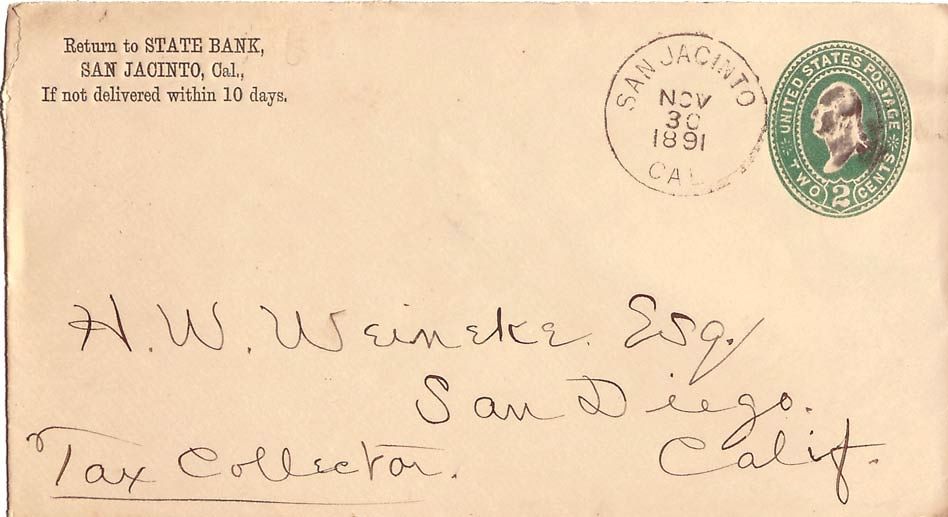 Return to STATE BANK,
SAN JACINTO, Cal.,
If not delivered within 10 days.
SAN JACINTO
NOV
30
1891
CAL
UNITED STATES POSTAGE
TWO 2 CENTS
H. W. Weineke. Esq.
San Diego.
Calif.
Tax Collector.